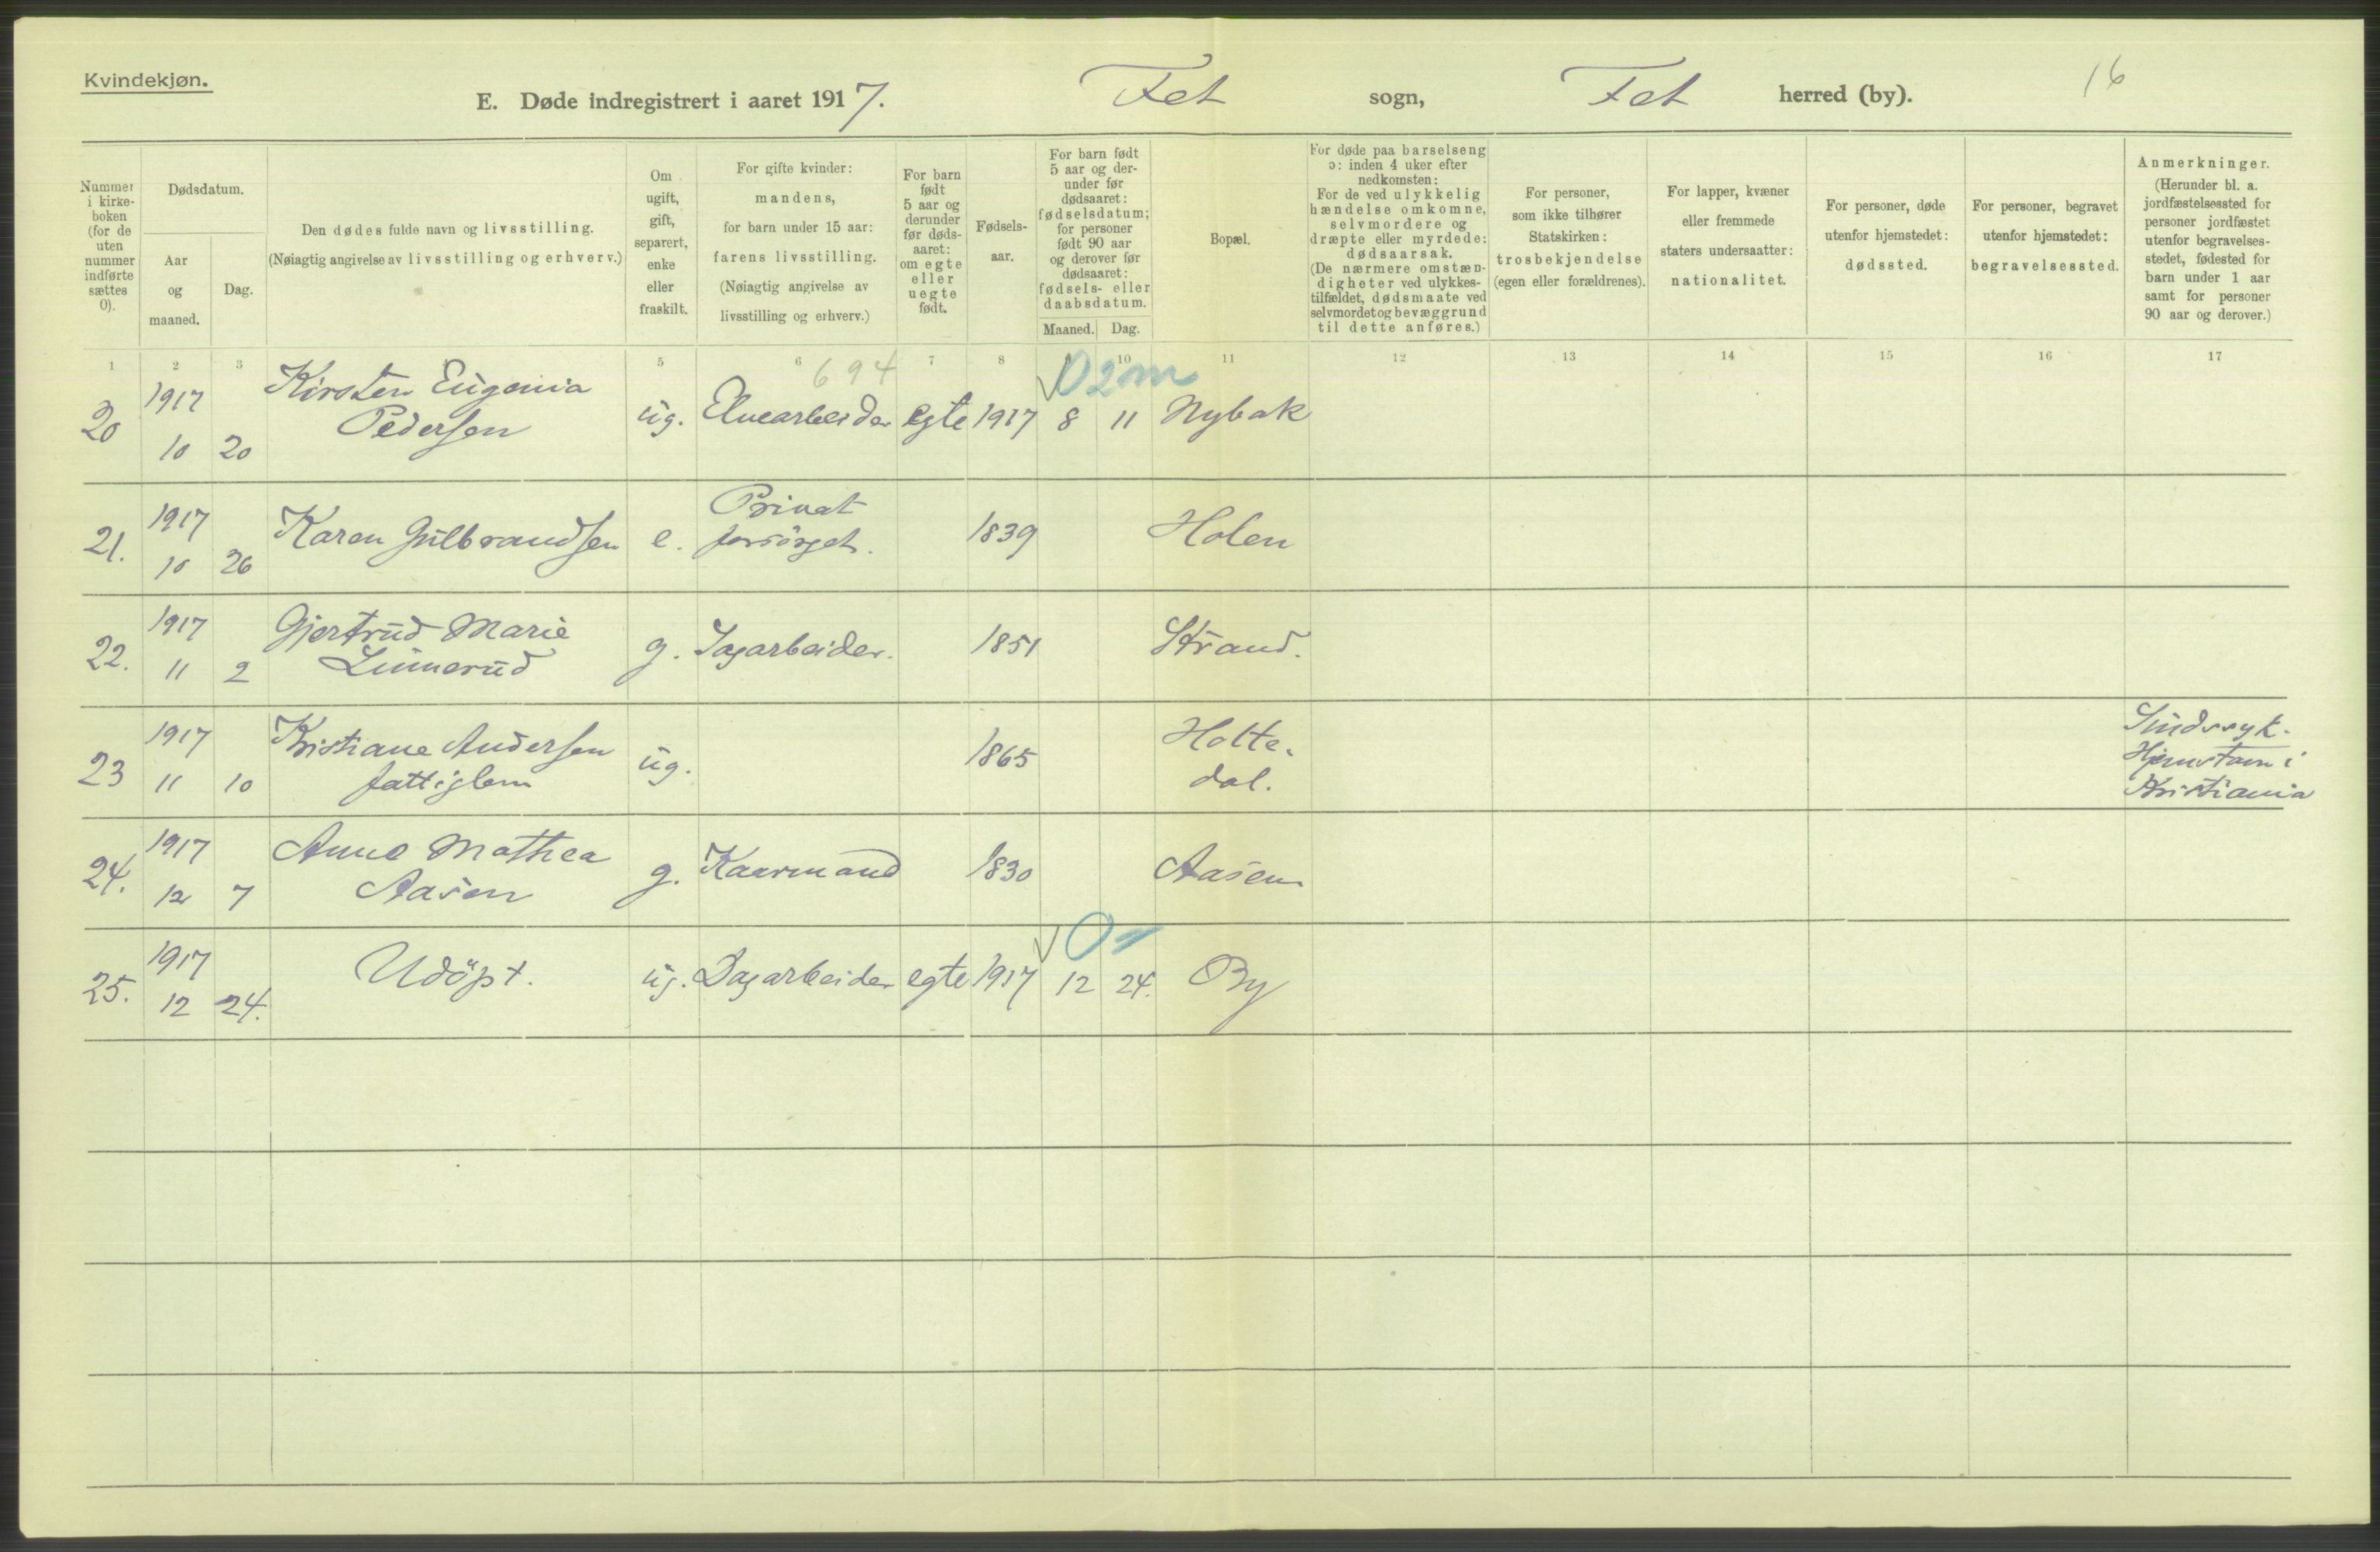 Kvindekjøn.
16
E. Døde indregistrert i aaret 1917. Fet sogn, Fet herred (by).
Nummer
i kirke-
boken
(for de
uten
nummer
indførte
sættes
0).
Dødsdatum.
Aar
og
maaned.
Dag.
Den dødes fulde navn og livsstilling.
(Nøiagtig angivelse av livsstilling og erhverv.)
Om
ugift,
gift,
separert,
enke
eller
fraskilt.
For gifte kvinder:
mandens,
for barn under 15 aar:
farens livsstilling.
(Nøiagtig angivelse av
livsstilling og erhverv.)
For barn
født
5 aar og
derunder
før døds-
aaret:
om egte
eller
uegte
født.
Fødsels-
aar.
For barn født
5 aar og der-
under før
dødsaaret:
fødselsdatum;
for personer
født 90 aar
og derover før
dødsaaret:
fødsels- eller
daabsdatum.
Maaned. Dag.
Bopæl.
For døde paa barselseng
ɔ: inden 4 uker efter
nedkomsten:
For de ved ulykkelig
hændelse omkomne,
selvmordere og
dræpte eller myrdede:
dødsaarsak.
(De nærmere omstæn-
digheter ved ulykkes-
tilfældet, dødsmaate ved
selvmordet og bevæggrund
til dette anføres.)
For personer,
som ikke tilhører
Statskirken:
trosbekjendelse
(egen eller forældrenes).
For lapper, kvæner
eller fremmede
staters undersaatter:
nationalitet.
For personer, døde
utenfor hjemstedet:
dødssted.
For personer, begravet
utenfor hjemstedet:
begravelsessted.
Anmerkninger.
(Herunder bl. a.
jordfæstelsessted for
personer jordfæstet
utenfor begravelses-
stedet, fødested for
barn under 1 aar
samt for personer
90 aar og derover.)
1 2 3 5 6 7 8 10 11 12 13 14 15 16 17
694
0 2m
20 1917 10 20 Kirsten Eugenia
Pedersen ug. Elvearbeider egte 1917 8 11 Nybak
21. 1917 10 26 Karen Gulbrandsen e. Privat
forsörget. 1839 Holen
22. 1917 11 2 Gjertrud Marie
Linnerud g. Sagarbeider. 1851 Strand.
23 1917 11 10 Kristiane Andersen
fattiglem ug. 1865 Holte-
dal.
Sindssyk.
Hjemstavn i
Kristiania
24. 1917 12 7 Anne Mathea
Aasen g. Kaarmand 1830 Aasen
0
25. 1917 12 24. Udöpt. ug. Dagarbeider egte 1917 12 24. By